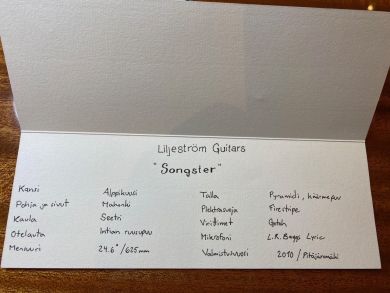 Liljeström Guitars
"Songster"
Kansi Alppikuusi
Pohja ja sivut Mahonki
Kaula Seetri
Otelauta Intian ruusupuu
Mensuuri 24.6" / 625mm
Talla Pyramidi, käärmepuu
Plektrasuoja Firestripe
Virittimet Gotoh
Mikrofoni L.R. Baggs Lyric
Valmistusvuosi / Pitäjänmäki